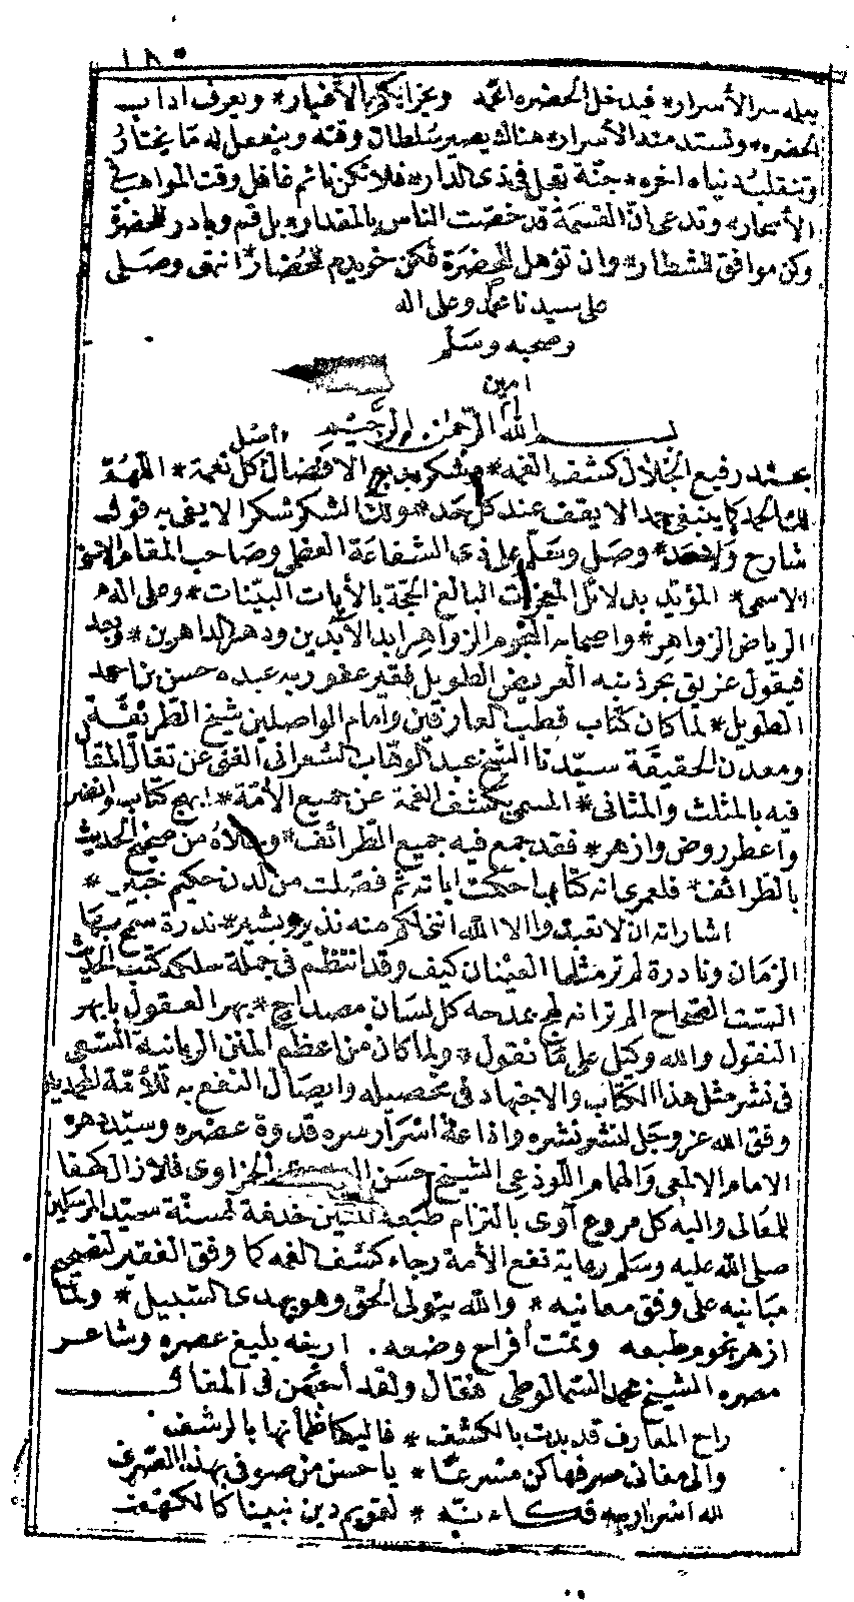 ١٨٠
بيله سر الأسرار * فيدخل الحضره ائمة ويخزا بكر بالأغيار * ويعرف اداب
الحضره * وتستمد منه الأسرار * هنالك يصير سلطان وقته وينفعل له ما يختار
وتنقلب دنياه اخره * جنة تعمل فى ذى الدار * فلا تكن نائم غافل وقت المواهب فى
الأسحار * وتدعى انّ القسمة قد خصّت الناس بالمقدار * بل قم وبادر للحضرة
وكن موافق للشطار * وان تؤهل للحضرة فكن خويدم للحضار * انتهى وصلى
على سيدنا محمد وعلى اله
وصحبه وسلم
امين
بسم الله الرّحمن الرحيم
بحمد رفيع الجلال كشف الغمه * وبشكر بديع الافضال اصل كل نعمة * اللهمّ
لك الحمد كما ينبغى حمدا لا يقف عند كل حد * ولك الشكر شكرا لا يفى به قول
شارح ولا حد * وصل وسلم على ذى الشفاعة العظمى وصاحب المقام الاسنى
الاسمى * المؤيّد بدلائل المعجزات البالغ الحجّة بالأيات البيّنات * وعلى اله
الرياض الزواهر * واصحابه النجوم الزواهر ابد الآبدين ودهر الداهرين * وبعد
فيقول غريق بحر ذنبه العريض الطويل فقير عفو ربه عبده حسن بن احمد
الطويل * لما كان كتاب قطب العارفين وامام الواصلين شيخ الطريقة
ومعدن الحقيقة سيّدنا الشيخ عبد الوهّاب الشعرانى الغنى عن تغالى المقال
فيه بالمثلث والمثانى * المسمى بكشف الغمة عن جميع الأمّة * ابهج كتاب وانضر
واعطر روض وازهر * فقد جمع فيه جميع الطّرائف * وحلاه من صحيح الحديث
بالظرائف * فلعمرى انه كتاب احكمت اياته ثمّ فصّلت من لدن حكيم خبير *
اشاراته ان لا تعبدوا الا الله اننى لكم منه نذير وبشير * ندرة سمح بها
الزمان ونادرة لم تر مثلها العينان كيف وقد انتظم فى جملة سلك كتب الحديث
الستت الصّحاح الم تر انه لهج بمدحه كل لسان مصداح * بهر العقول بابهر
النقول والله وكيل على ما نقول * ولما كان من اعظم المنن الربانية السّعى
فى نشر مثل هذا الكتاب والاجتهاد فى تحصيله وايصال النفع به للأمّة المحمديه
وفق الله عز وجل لنشر نشره واذاعة اسرار سره قدوة عصره وسيّد دهره
الامام الالمعى والهمام اللوذعى الشيخ حسن العدوى الحمزاوى فلازال كهفا
للمعالى واليه كل مروع آوى بالتزام طبعه للتين خدمة لسنّة سيّد المرسلين
صلى الله عليه وسلم رعاية نفع الأمة رجاء كشف الغمه كما وفق الفقير لتصحيح
مبانيه على وفق معانيه * والله يتولى الحق وهو يهدى السّبيل * ولمّا
ازهر نجوم طبعه وتمّت أفراح وضعه . ارخه بليغ عصره وشاعر
مصره الشيخ محمد السّمالوطى فقال ولقد أحسن فى المقال
راح المعارف قد بدت بالكشف * فاليها ظمآنها بالرشف
والى معانى صرفها كن مسرعًا * يا حسن من صوفى بهذا الصّرف
لله اسرار به قد نبّه * لقويم دين نبينا كالكهف